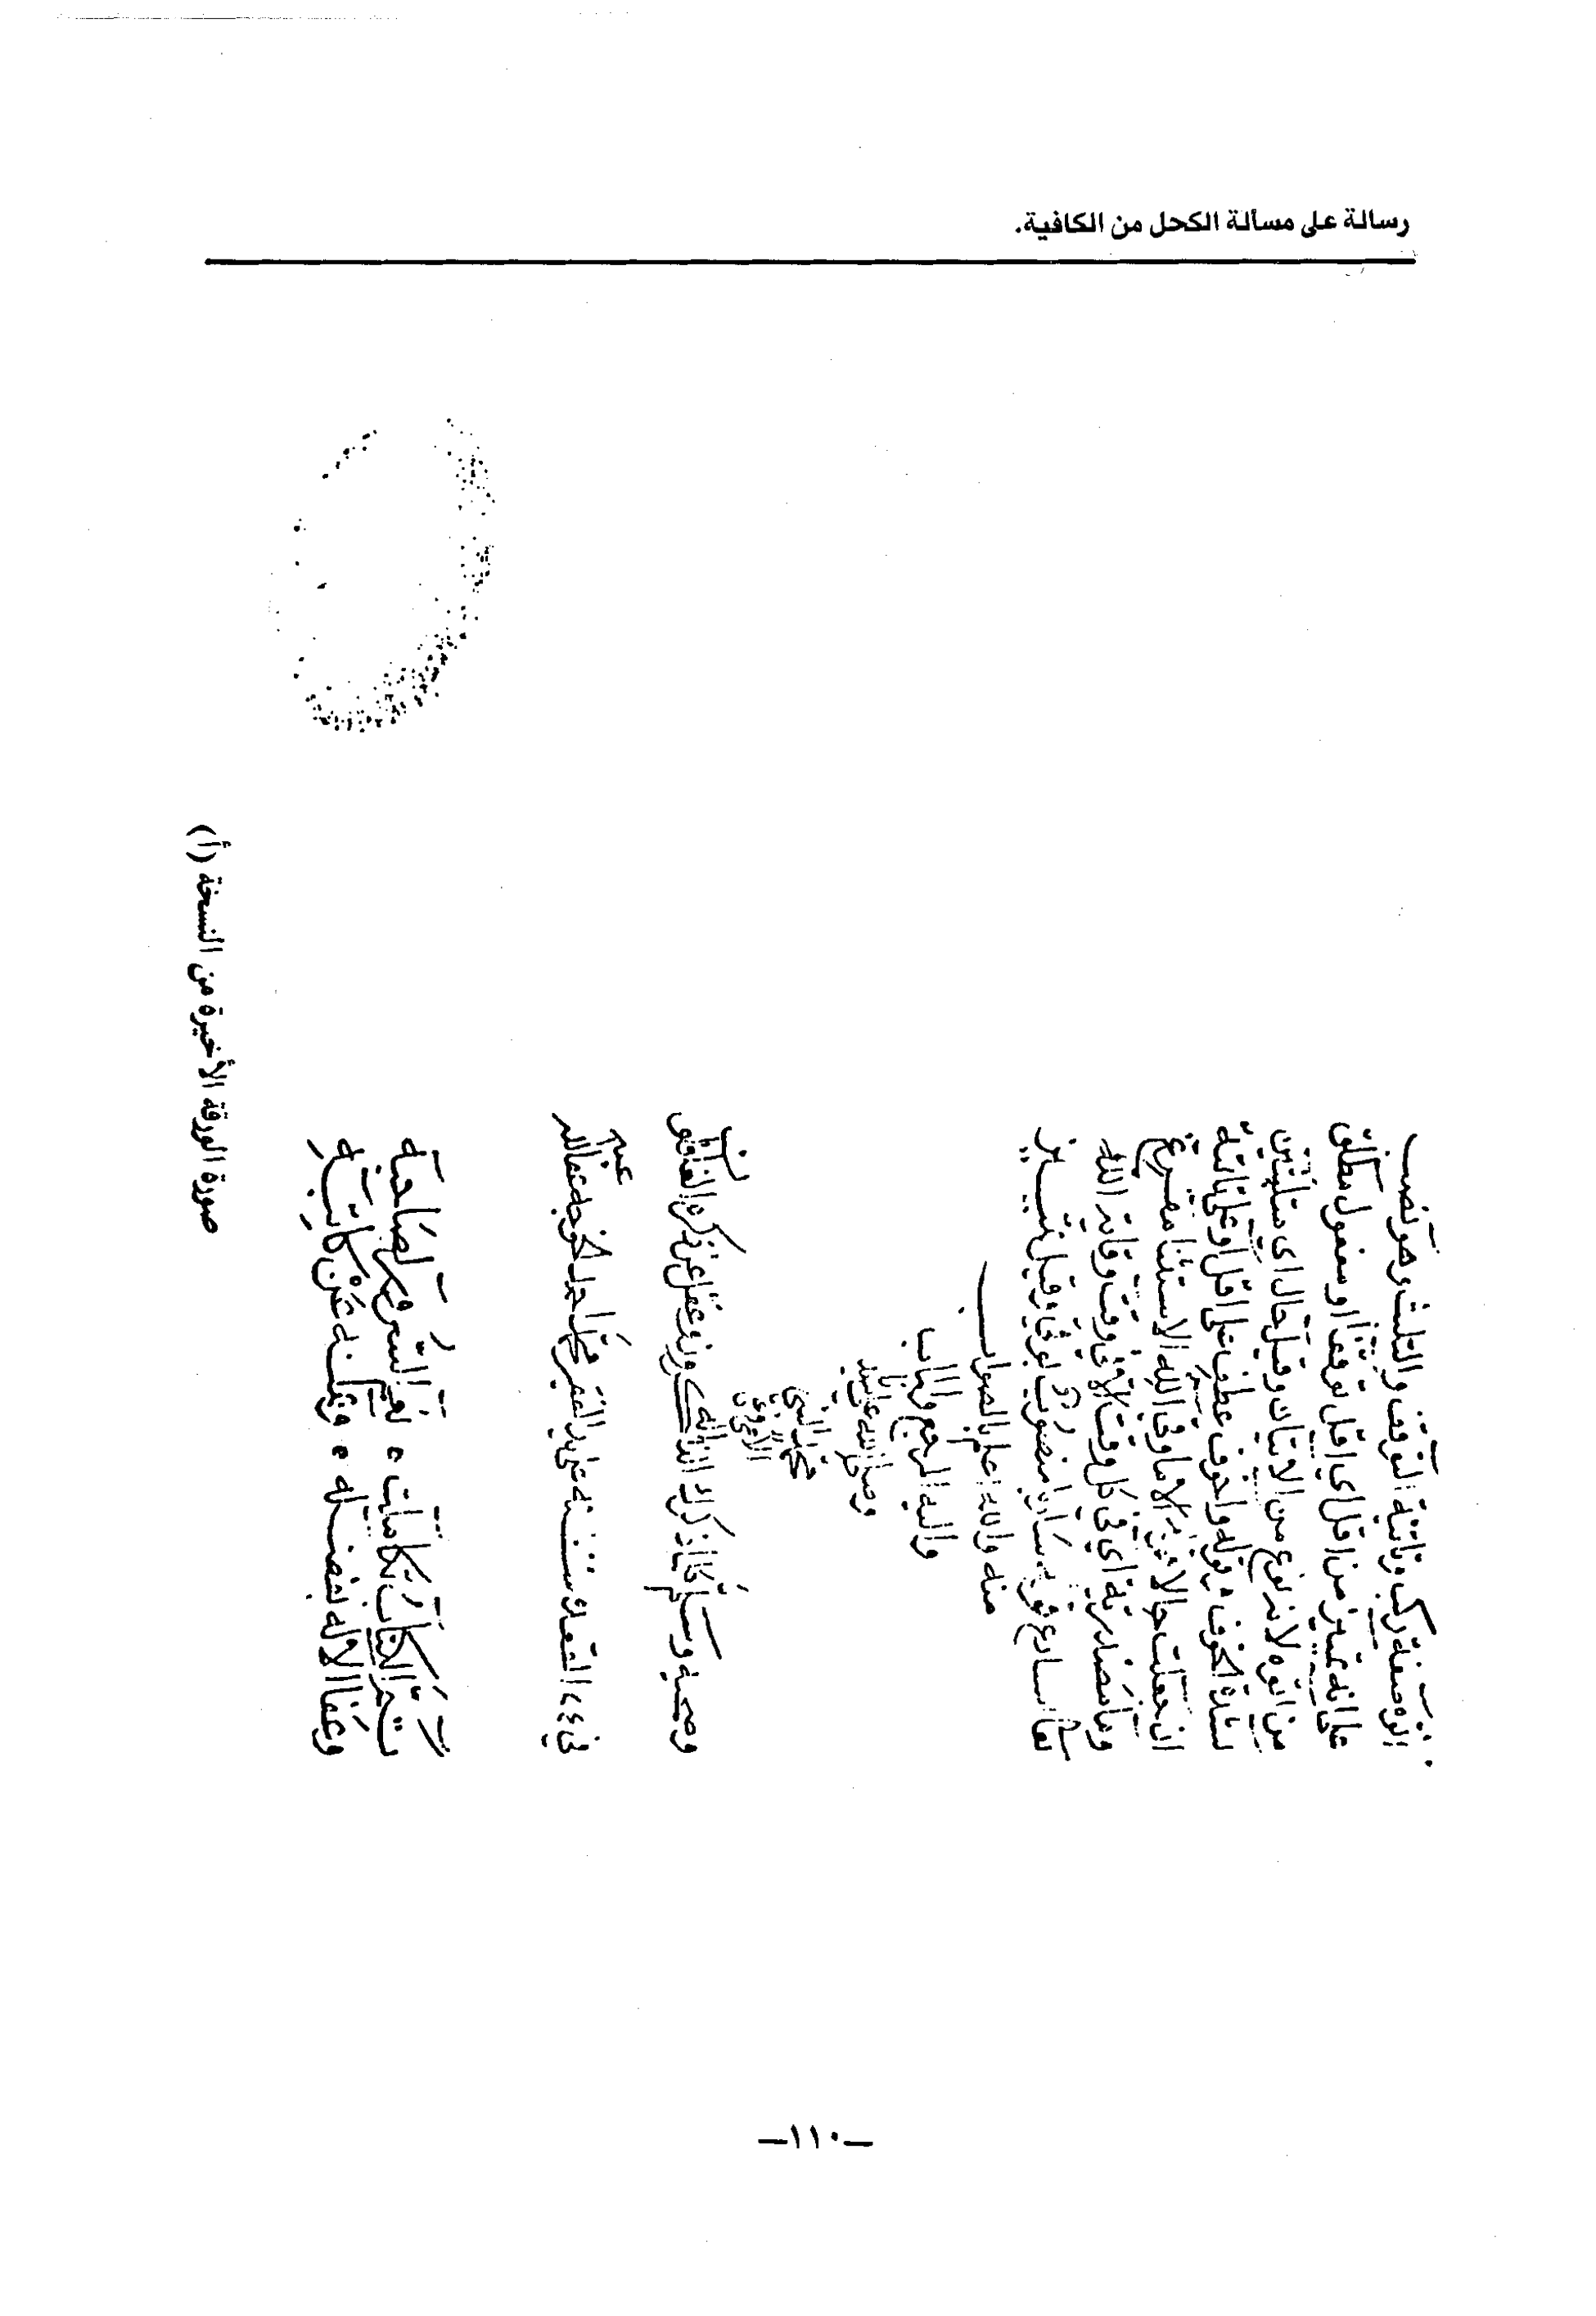 رسالة على مسألة الكحل من الكافية.
الوصفة ركب وتائية التوقف والتلبث وهو نصب
على انه تمييز من اقل اي اقل توقفا او مفعول مطلق
من اتوه لانه نوع من الاتيان وقيل حال اي متلبثين
لشدة الخوف قوله واخوف عطف على اقل او على تائية
ان جعلت حالا الا ما وقى الله الاستثنا مفرغ
وما مصدرية اي في كل وقت الا في وقت وقاية الله
تعالى ساريا منصوب بوقى وقيل تمييز
منه والله اعلم بالصواب
واليه المرجع والماب
وصلى الله على سيدنا
محمد النبي
الامي وعلى
وصحبه وسلم كلما ذكرك الذاكرون وغفل عن ذكره الغافلون
في ٤ القعدة سنة على يد الفقير محمد احمد الخوجه عفا الله عنه
تم الكتاب تكاملت ٥ نعم السرور لصاحبه
وعفا الاله بفضله ٥ وبمنه عن كاتبه
صورة الورقة الأخيرة من النسخة (أ)
—١١٠—